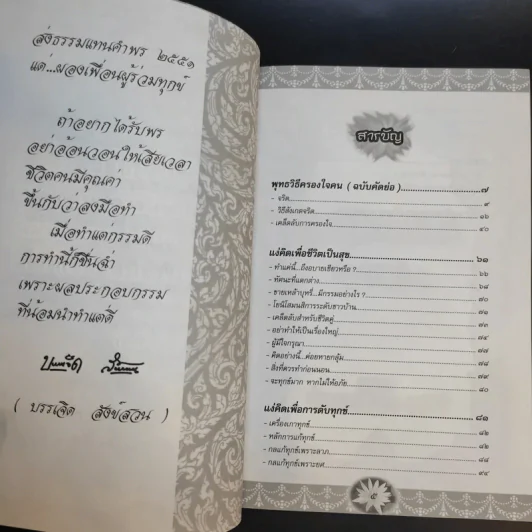 ส่งธรรมแทนคำพร ๒๕๕๑
แด่...ผองเพื่อนผู้ร่วมทุกข์
ถ้าอยากได้รับพร
อย่าอ้อนวอนให้เสียเวลา
ชีวิตคนมีคุณค่า
ขึ้นกับว่าลงมือทำ
เมื่อทำแต่กรรมดี
การทำนี้ก็ชื่นฉ่ำ
เพราะผลประกอบกรรม
ที่น้อมนำทำแต่ดี
( บรรเจิด สังข์สวน )
สารบัญ
พุทธวิธีครองใจคน ( ฉบับคัดย่อ ) ๗
- จริต ๙
- วิธีสังเกตจริต ๑๖
- เคล็ดลับการครองใจ ๔๐
แง่คิดเพื่อชีวิตเป็นสุข ๖๑
- ทำแค่นี้...ถึงอบายเชียวหรือ ? ๖๖
- ทัศนะที่แตกต่าง ๖๘
- ขายเหล้าบุหรี่...มีกรรมอย่างไร ? ๗๐
- โยนิโสมนสิการระดับชาวบ้าน ๗๒
- เคล็ดลับสำหรับชีวิตคู่ ๗๓
- อย่าทำให้เป็นเรื่องใหญ่ ๗๕
- ผู้มีใจกรุณา ๗๗
- คิดอย่างนี้...ค่อยหายกลุ้ม ๗๘
- สิ่งที่ควรทำก่อนนอน ๗๙
- จะทุกข์มาก หากไม่ให้อภัย ๘๐
แง่คิดเพื่อการดับทุกข์ ๘๑
- เครื่องเกาทุกข์ ๘๒
- หลักการแก้ทุกข์ ๘๒
- กลแก้ทุกข์เพราะลาภ ๘๔
- กลแก้ทุกข์เพราะยศ ๙๔
๕